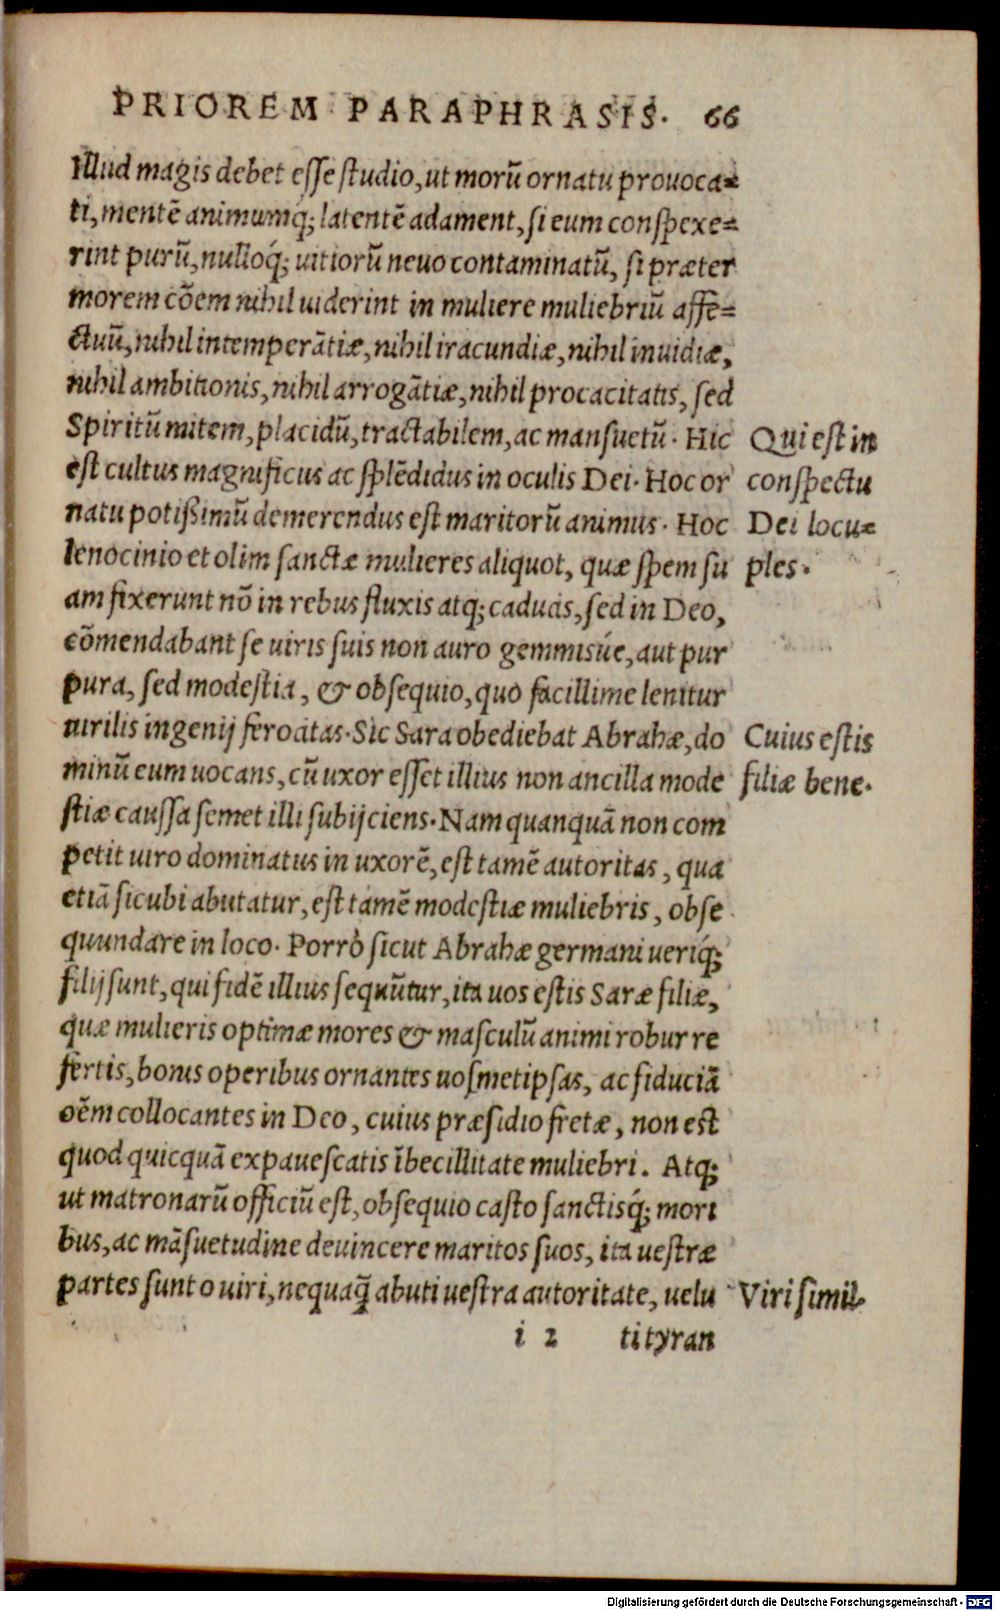 PRIOREM PARAPHRASIS. 66
Illud magis debet esse studio, ut morũ ornatu prouoca=
ti, mentẽ animumq́; latentẽ adament, si eum conspexe=
rint purũ, nulloq́; uitiorũ neuo contaminatũ, si præter
morem cõem nihil uiderint in muliere muliebriũ affe=
ctuũ, nihil intemperãtiæ, nihil iracundiæ, nihil inuidiæ,
nihil ambitionis, nihil arrogãtiæ, nihil procacitatis, sed
Spiritũ mitem, placidũ, tractabilem, ac mansuetũ. Hic
Qui est in
est cultus magnificus ac splẽdidus in oculis Dei. Hoc or
conspectu
natu potißimũ demerendus est maritorũ animus. Hoc
Dei locu=
lenocinio et olim sanctæ mulieres aliquot, quæ spem su
ples.
am fixerunt nõ in rebus fluxis atq; caducis, sed in Deo,
cõmendabant se uiris suis non auro gemmisúe, aut pur
pura, sed modestia, & obsequio, quo facillime lenitur
uirilis ingenij ferocitas. Sic Sara obediebat Abrahæ, do
Cuius estis
minũ eum uocans, cũ uxor esset illius non ancilla mode
filiæ bene.
stiæ caussa semet illi subijciens. Nam quanquã non com
petit uiro dominatus in uxorẽ, est tamẽ autoritas, qua
etiã sicubi abutatur, est tamẽ modestiæ muliebris, obse
quundare in loco. Porrò sicut Abrahæ germani ueriq́;
filij sunt, qui fidẽ illius sequũtur, ita uos estis Saræ filiæ,
quæ mulieris optimæ mores & masculũ animi robur re
fertis, bonis operibus ornantes uosmetipsas, ac fiduciã
oẽm collocantes in Deo, cuius præsidio fretæ, non est
quod quicquã expauescatis ĩbecillitate muliebri. Atq;
ut matronarũ officiũ est, obsequio casto sanctisq́; mori
bus, ac mãsuetudine deuincere maritos suos, ita uestræ
partes sunt o uiri, nequaq̃ abuti uestra autoritate, uelu
Viri simil.
i 2 ti tyran
Digitalisierung gefördert durch die Deutsche Forschungsgemeinschaft - DFG